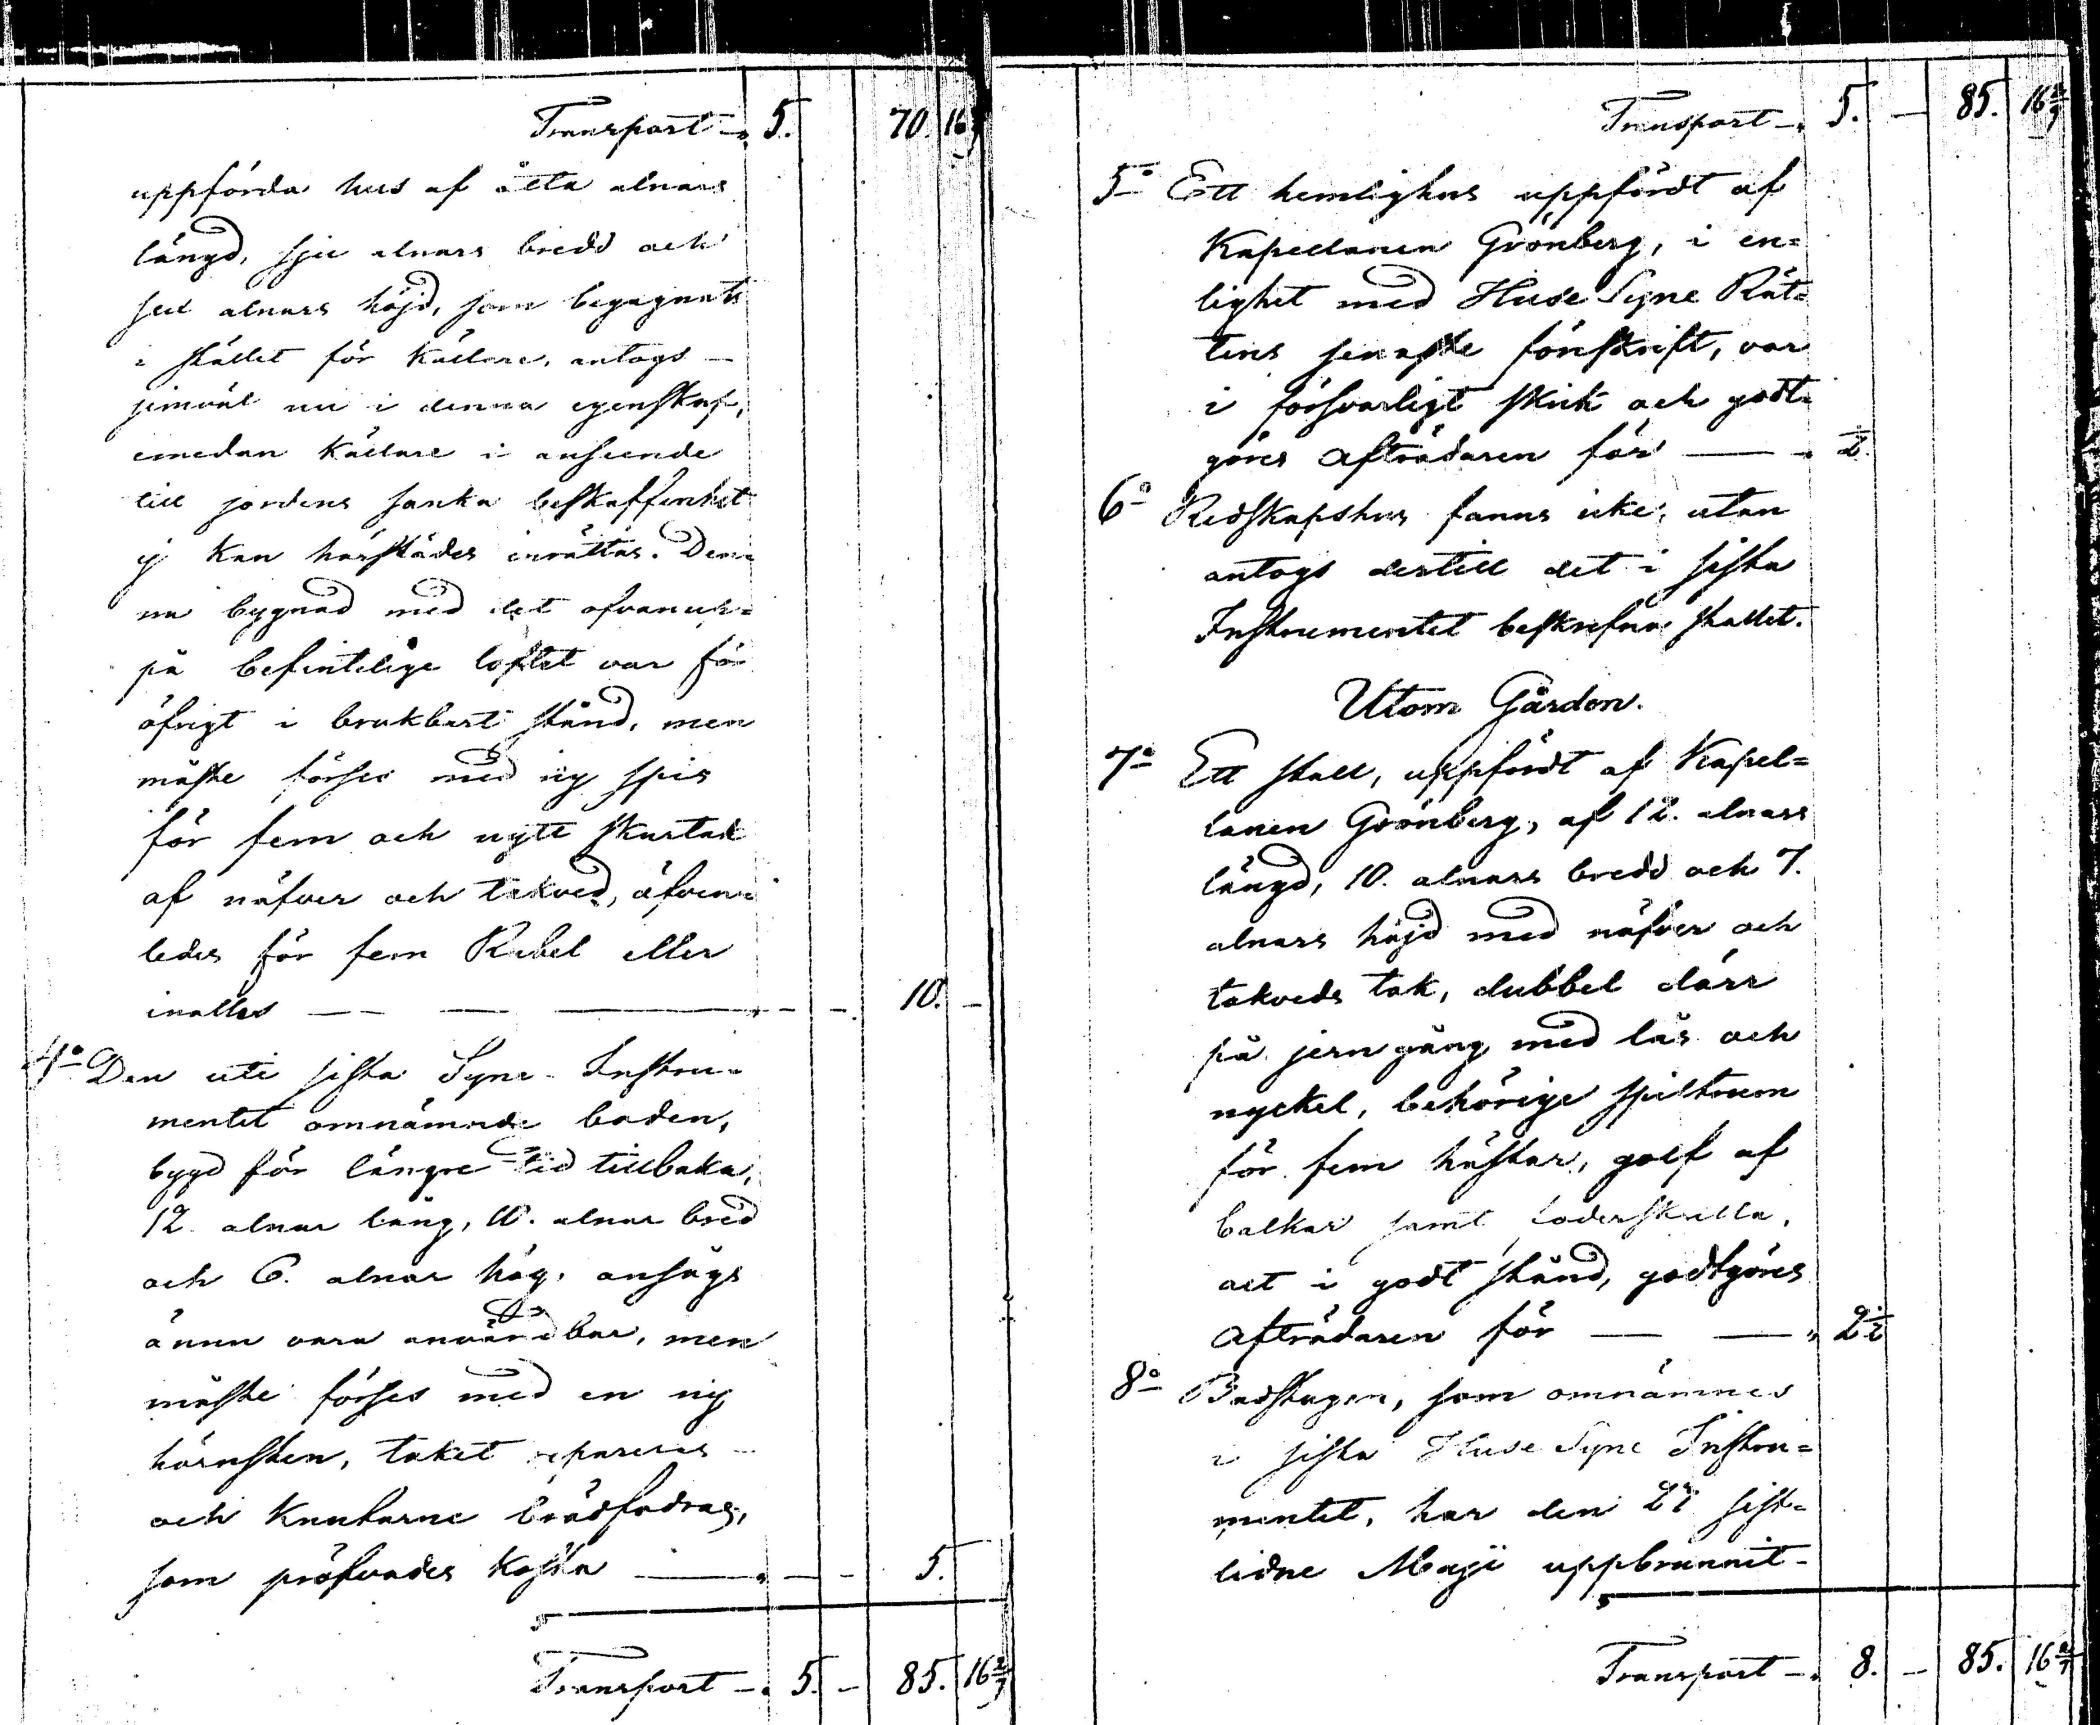 Transport -. 5. 70. 16 2/7
uppförda hus af åtta alnars
längd, sju alnars bredd och
sex alnars höjd, som begagnats
i stället för källare, antogs -
jemväl nu i denna egenskap,
emedan källare i anseende
till jordens sanka beskaffenhet
ej kan härstädes inrättas. Den-
na bygnad med det ofvanup-
på befintelige loftet var för
öfrigt i brukbart stånd, men
måste förses med ny spis
för fem och nytt skurtak
af näfver och takved, äfven-
ledes för fem Rubel eller
inalles — — — 10. -
4o Den uti sista Syne-Instru-
mentet omnämnde boden,
bygd för längre tid tillbaka,
12 alnar lång, 10. alnar bred
och 6. alnar hög, ansågs
ännu vara användbar, men
måste förses med en ny
hörnsten, taket repareras -
och knutarne brädfodras,
som pröfvades kosta — 5.
Transport -. 5. - 85. 16 2/7
Transport -. 5. - 85. 16 2/7
5o Ett hemlighus uppfördt af
Kapellanen Grönberg, i en-
lighet med Huse Syne Rät-
tens senaste förskrift, var
i försvarligt skick och godt-
göres afträdaren för — . 1/2.
6o Redskapshus fanns icke, utan
antogs dertill det i sista
Instrumentet beskrefne stallet.
Utom Gården.
7o Ett stall, uppfördt af Kapel-
lanen Grönberg, af 12. alnars
längd, 10. alnars bredd och 7.
alnars höjd med näfver och
takveds tak, dubbel dörr
på jerngång med lås och
nyckel, behörige spiltrum
för fem hästar, golf af
balkar samt foderskulla,
allt i godt stånd, godtgöres
Afträdaren för — — 2 1/2
8o Badstugan, som omnämnes
i sista Huse Syne Instru-
mentet, har den 27 sist-
lidne Maji uppbrunnit -
Transport -. 8. - 85. 16 2/7